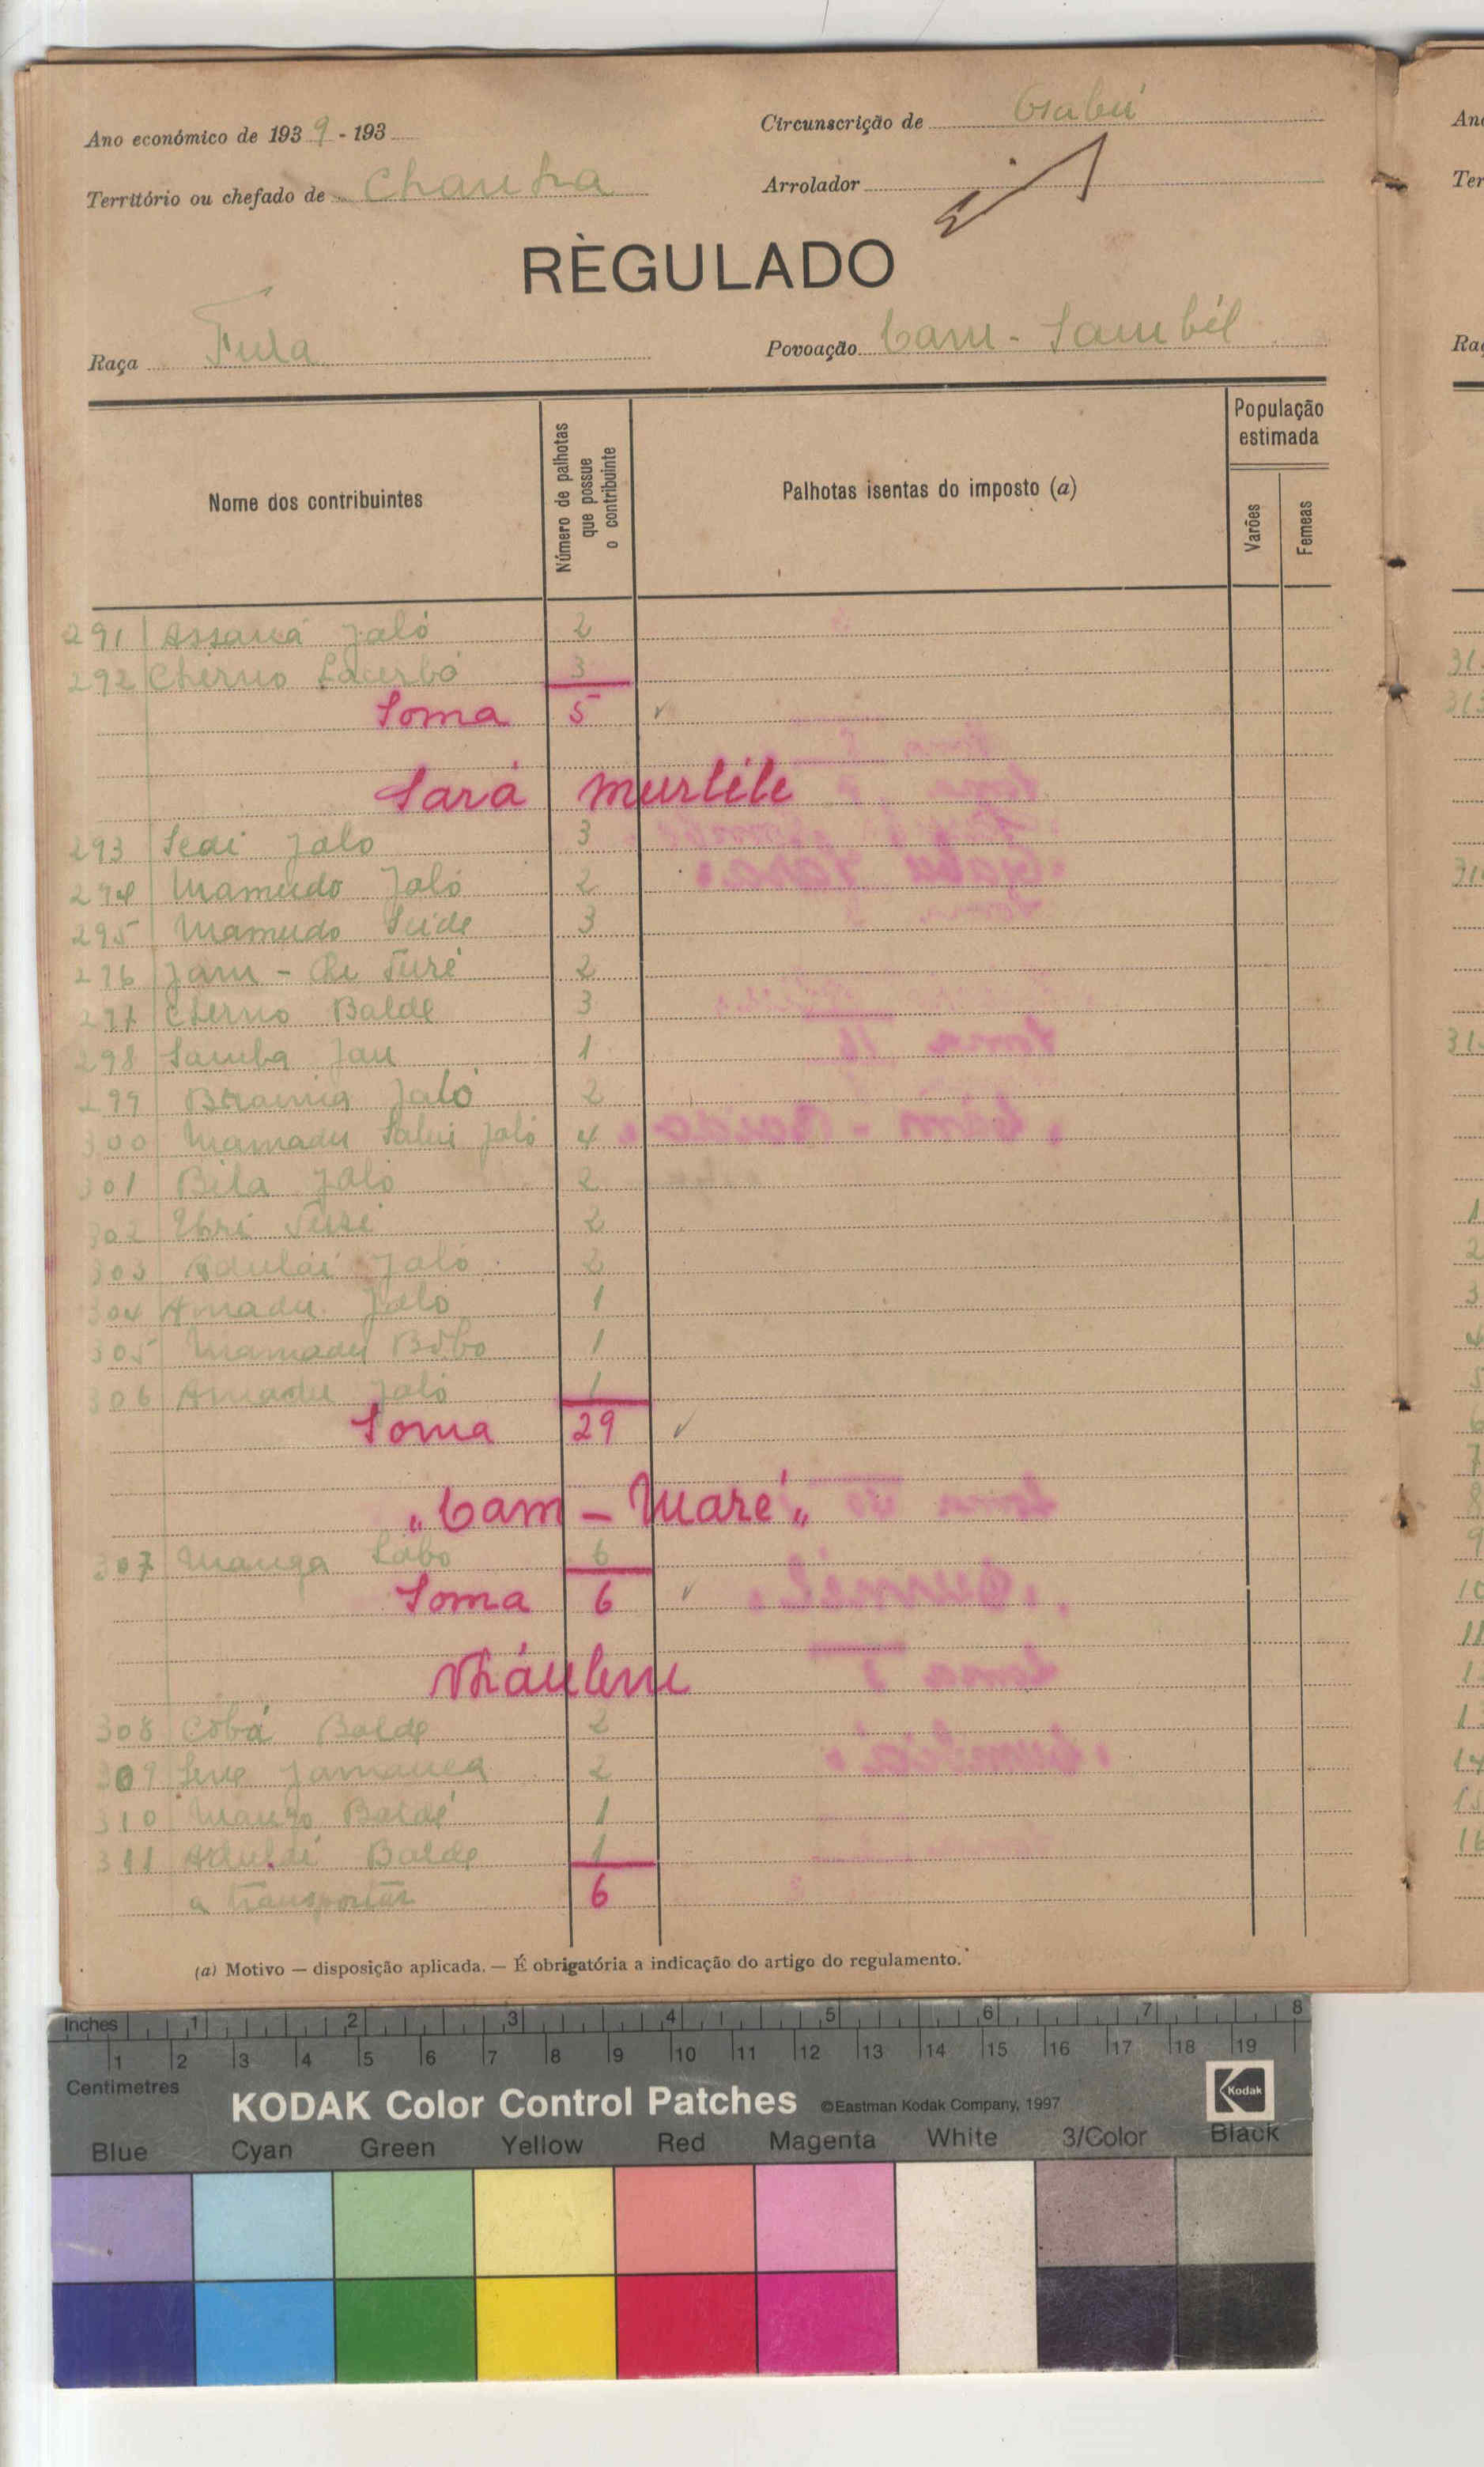 Ano económico de 1939 - 193
Circunscrição de Gabú
Território ou chefado de Chanha
Arrolador
RÈGULADO
Raça Fula
Povoação Cam - Sambél
Nome dos contribuintes
Número de palhotas que possue o contribuinte
Palhotas isentas do imposto (a)
População estimada
Varões
Femeas
291 Assaná Jaló 2
292 Cherno 3
Soma 5
Sará
293 Sedi Jalo 3
294 Mamudo Jaló 2
295 Mamudo Seide 3
296 Jam - Turé 2
297 Cherno Balde 3
298 Samba Jau 1
299 Braima Jaló 2
300 Mamadu Jaló 4
301 Bela Jaló 2
302 2
303 Adulái Jaló 2
304 Amadu Jaló 1
305 Mamadu Bôbo 1
306 Amadu Jaló 1
Soma 29
"Cam - Maré"
307 Manga 6
Soma 6
308 Côbá Balde 2
309 2
310 Baldé 1
311 Balde 1
a transportar 6
(a) Motivo — disposição aplicada. — É obrigatória a indicação do artigo do regulamento.
Inches 1 2 3 4 5 6 7 8
1 2 3 4 5 6 7 8 9 10 11 12 13 14 15 16 17 18 19
Centimetres
KODAK Color Control Patches ©Eastman Kodak Company, 1997 Kodak
Blue Cyan Green Yellow Red Magenta White 3/Color Black